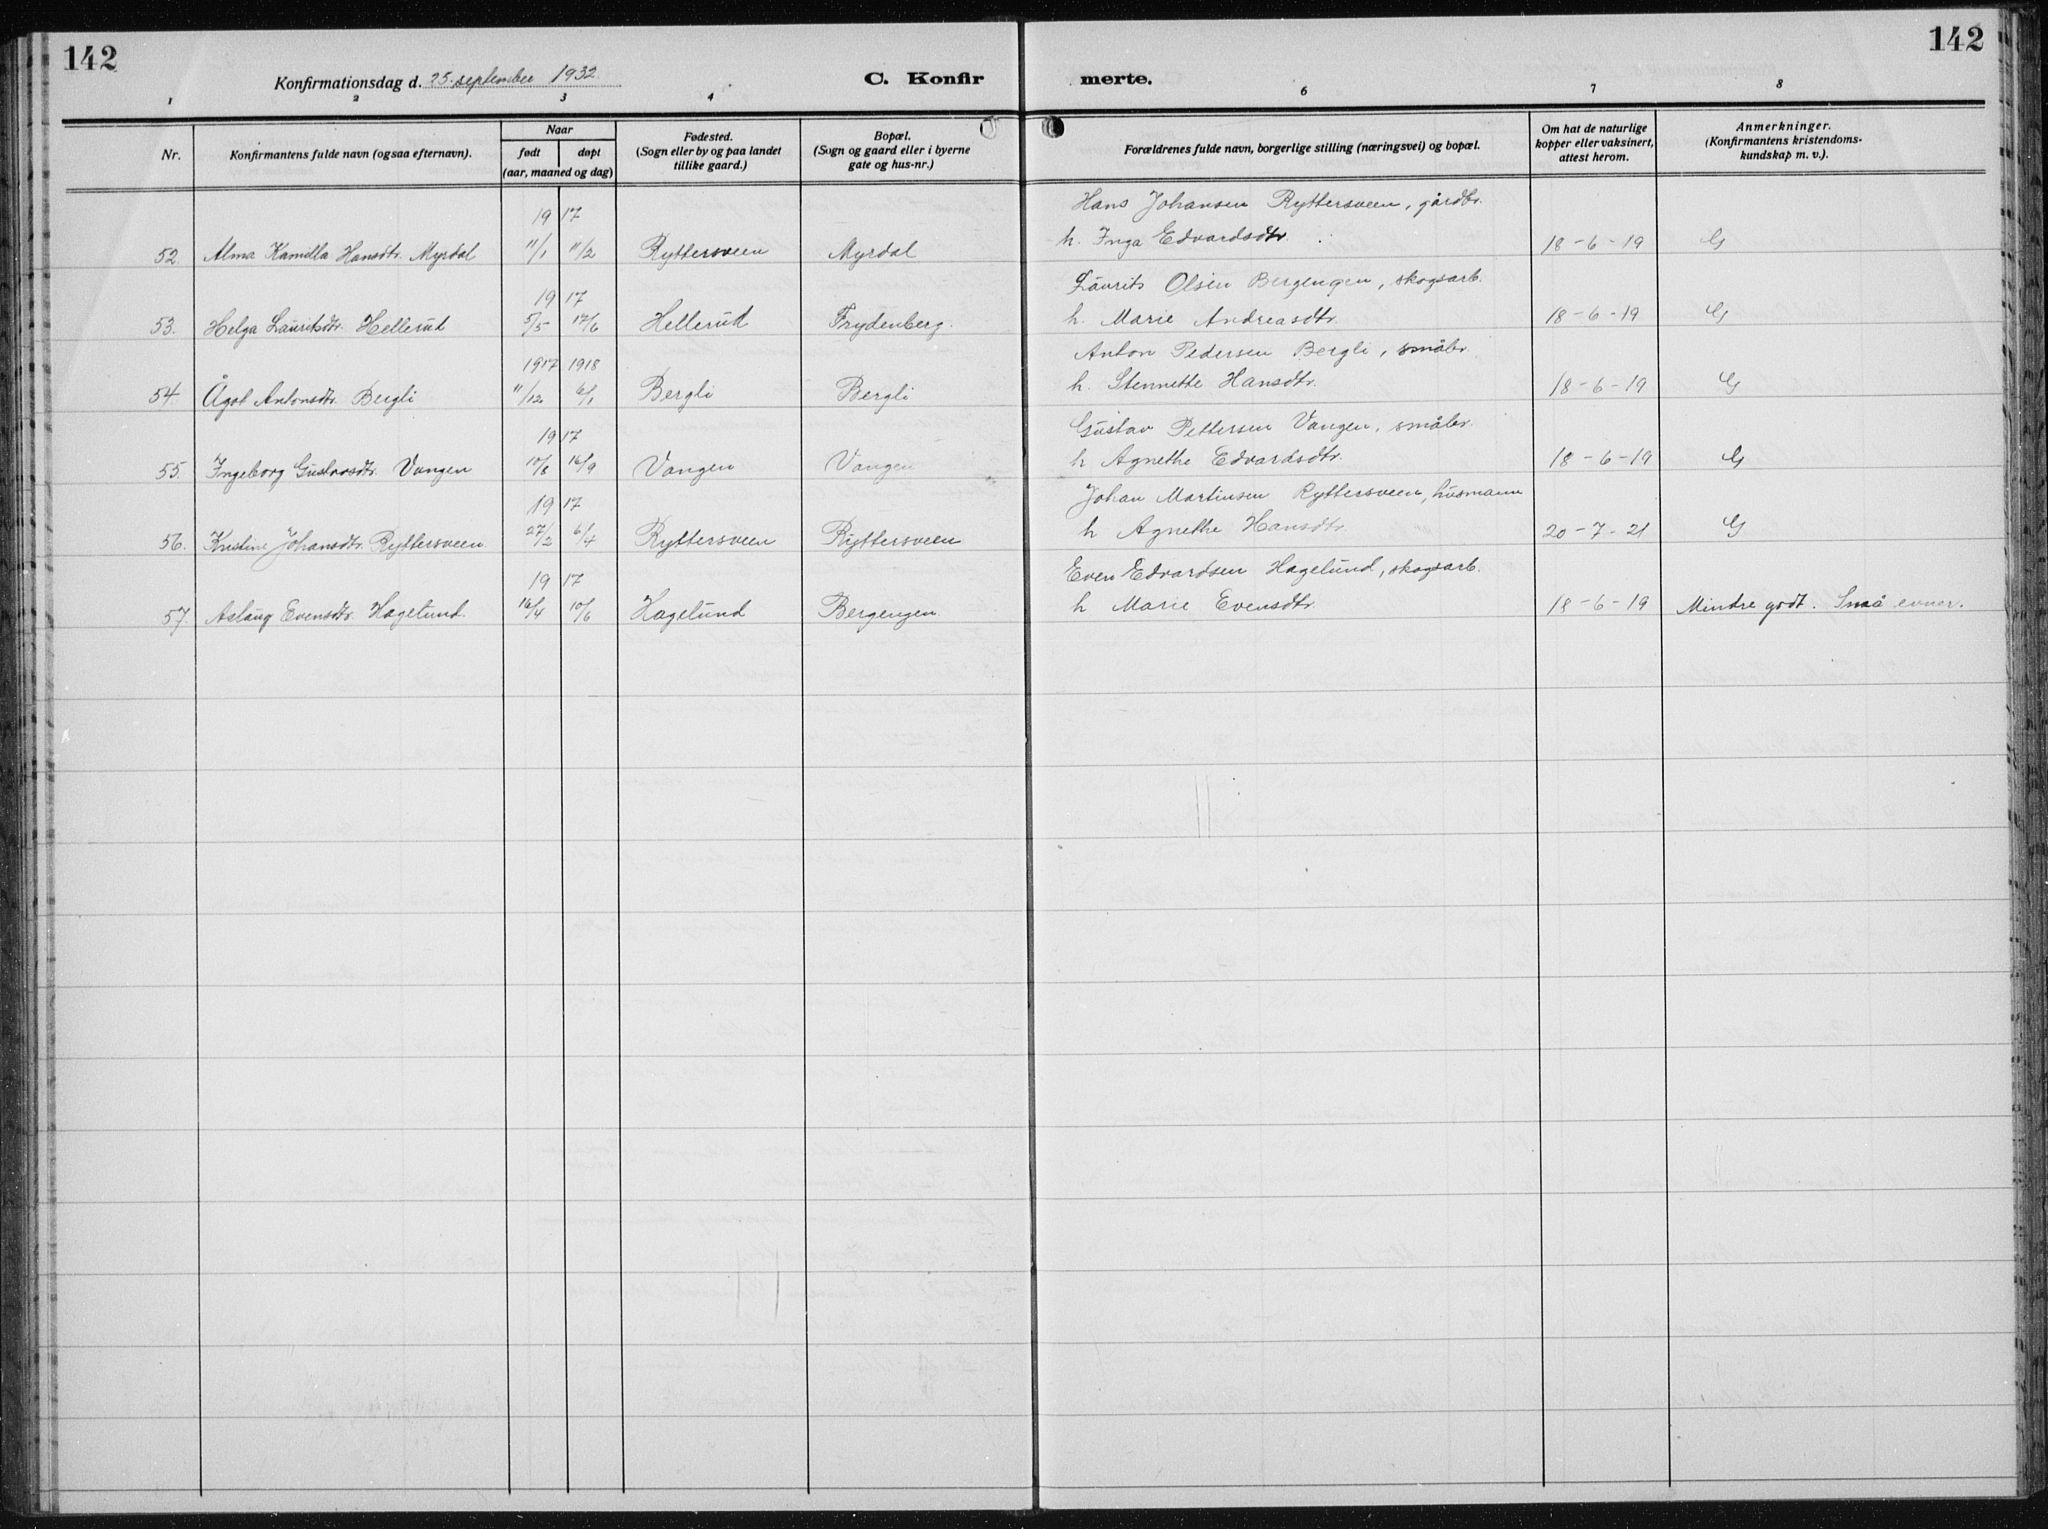 142
142
Konfirmationsdag d. 25. september 1932.
C. Konfir
merte.
1 2 3 4 6 7 8
Nr.
Konfirmantens fulde navn (ogsaa efternavn).
Naar
født døpt
(aar, maaned og dag)
Fødested.
(Sogn eller by og paa landet
tillike gaard.)
Bopæl.
(Sogn og gaard eller i byerne
gate og hus-nr.)
Forældrenes fulde navn, borgerlige stilling (næringsvei) og bopæl.
Om hat de naturlige
kopper eller vaksinert,
attest herom.
Anmerkninger.
(Konfirmantens kristendoms-
kundskap m. v.).
19 17 Hans Johansen Ryttersveen, gårdbr.
52. Alma Kamilla Hansdtr. Myrdal 11/1 11/2 Ryttersveen Myrdal h. Inga Edvardsdtr. 18-6-19 G
19 17 Laurits Olsen Bergengen, skogsarb.
53. Helga Lauritsdtr. Hellerud 5/5 17/6 Hellerud Frydenberg. h. Marie Andreasdtr. 18-6-19 G
1917 1918 Anton Pedersen Bergli, småbr.
54. Ågot Antonsdtr. Bergli 11/12 6/1 Bergli Bergli h. Stennette Hansdtr. 18-6-19 G
19 17 Gustav Pettersen Vangen, småbr.
55. Ingeborg Gustavsdtr. Vangen 10/8 16/9 Vangen Vangen h Agnethe Edvardsdtr. 18-6-19 G
19 17 Johan Martinsen Ryttersveen, husmann
56. Kristine Johansdtr. Ryttersveen 27/2 6/4 Ryttersveen Ryttersveen h Agnethe Hansdtr. 20-7-21 G
19 17 Even Edvardsen Hagelund, skogsarb.
57. Aslaug Evensdtr. Hagelund. 16/4 10/6 Hagelund Bergengen. h Marie Evensdtr. 18-6-19 Mindre godt. Små evner.